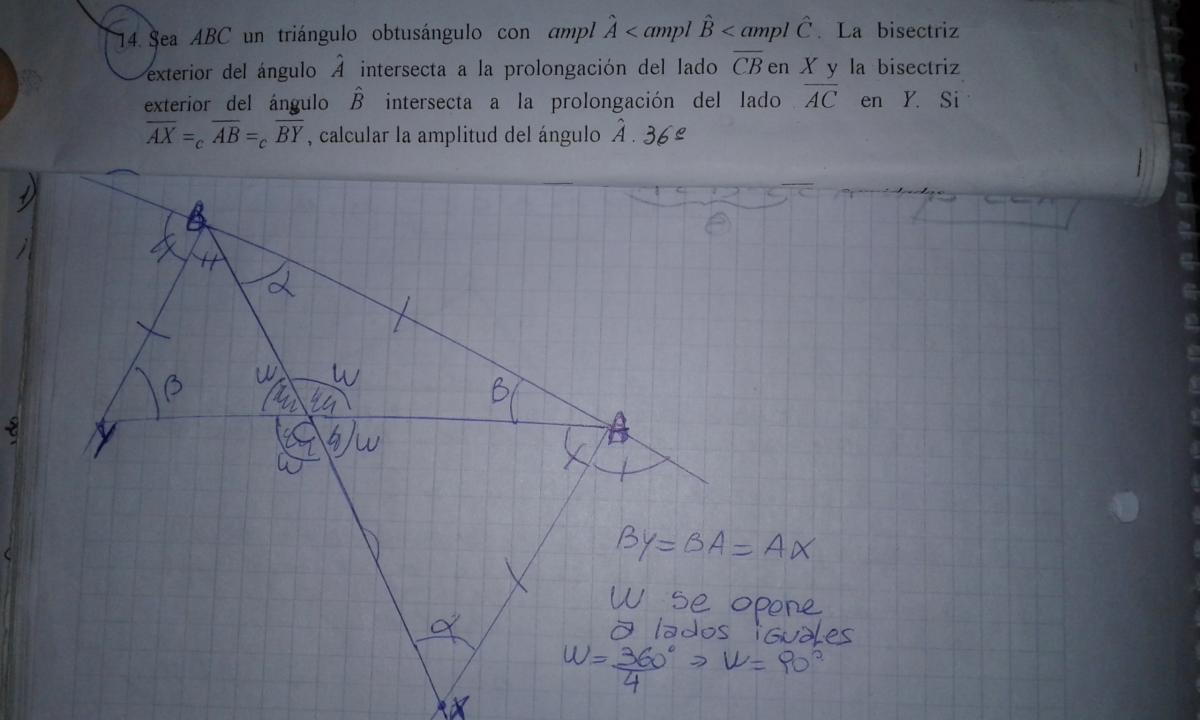 14. Sea ABC un triángulo obtusángulo con ampl Â < ampl B̂ < ampl Ĉ. La bisectriz
exterior del ángulo Â intersecta a la prolongación del lado CB en X y la bisectriz
exterior del ángulo B̂ intersecta a la prolongación del lado AC en Y. Si
AX =c AB =c BY, calcular la amplitud del ángulo Â. 36º
B
α
β
W
W
B
Y
C
W
W
A
α
X
BY = BA = AX
W se opone
a lados iguales
W = 360°/4 → W = 90°